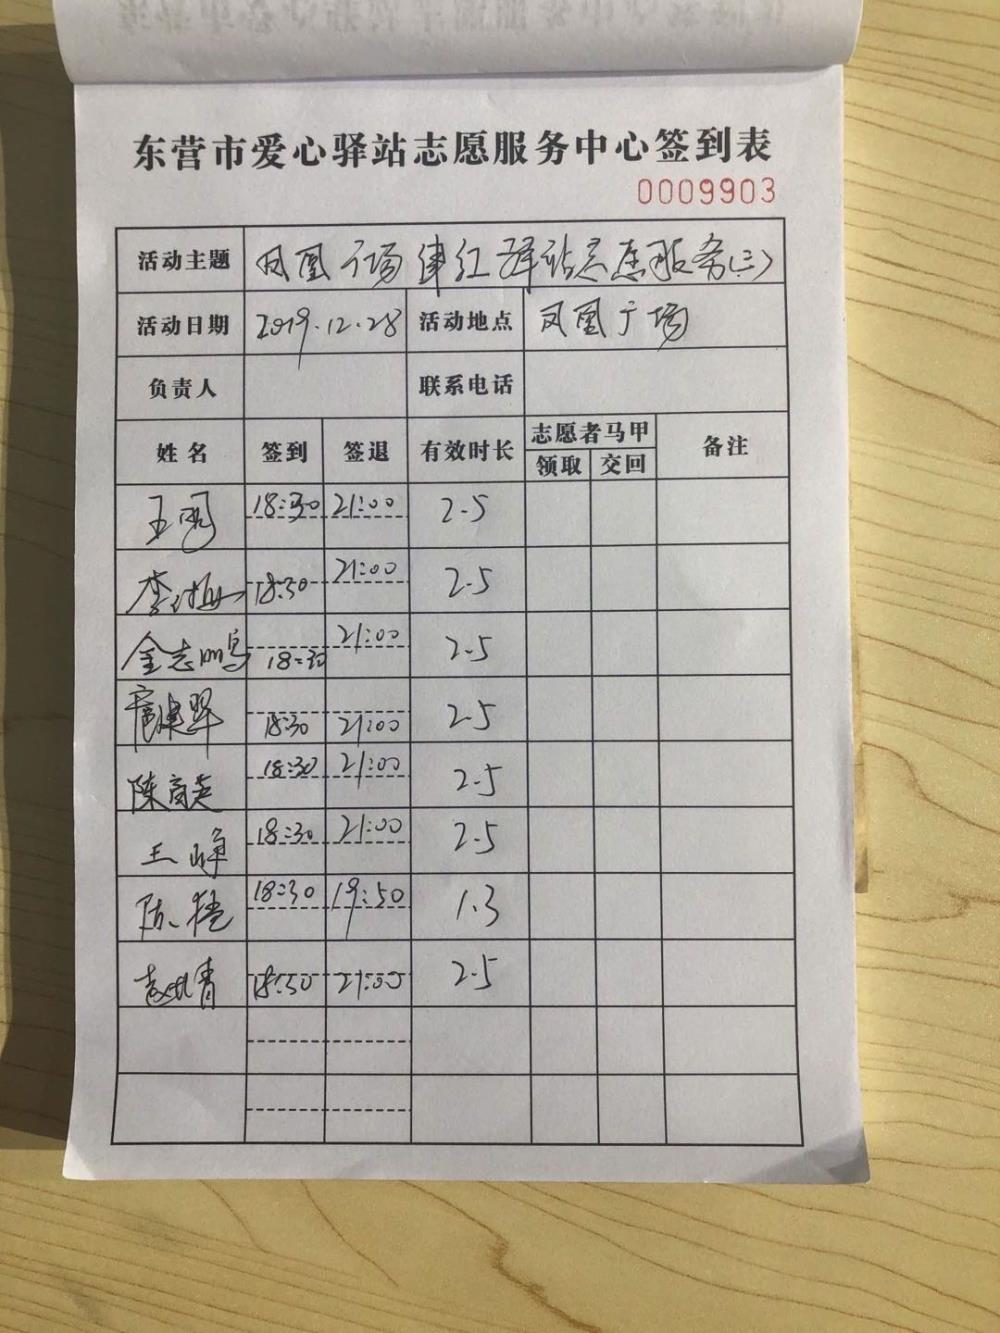 东营市爱心驿站志愿服务中心签到表
0009903
活动主题 凤凰广场建红驿站志愿服务(三)
活动日期 2019.12.28 活动地点 凤凰广场
负责人 联系电话
姓名 签到 签退 有效时长 志愿者马甲 备注
领取 交回
王 18:30 21:00 2.5
李 18:30 21:00 2.5
金志鸣 18:30 21:00 2.5
18:30 21:00 2.5
陈 18:30 21:00 2.5
王峥 18:30 21:00 2.5
陈 18:30 19:50 1.3
青 18:30 21:00 2.5